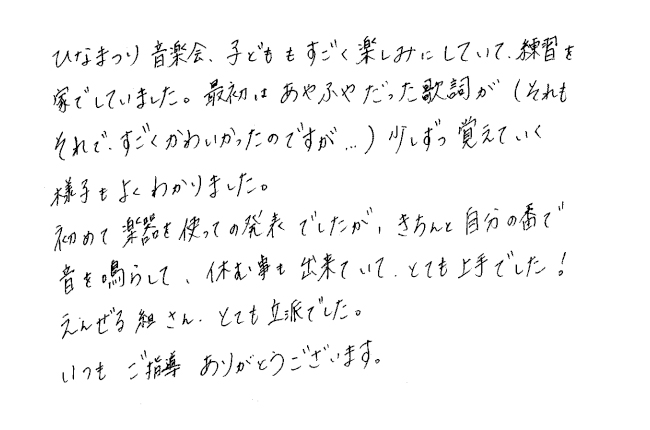 ひなまつり音楽会、子どももすごく楽しみにしていて、練習を
家でしていました。最初はあやふやだった歌詞が(それも
それで、すごくかわいかったのですが…)少しずつ覚えていく
様子もよくわかりました。
初めて楽器を使っての発表でしたが、きちんと自分の番で
音を鳴らして、休む事も出来ていて、とても上手でした!
えんぜる組さん、とても立派でした。
いつもご指導ありがとうございます。